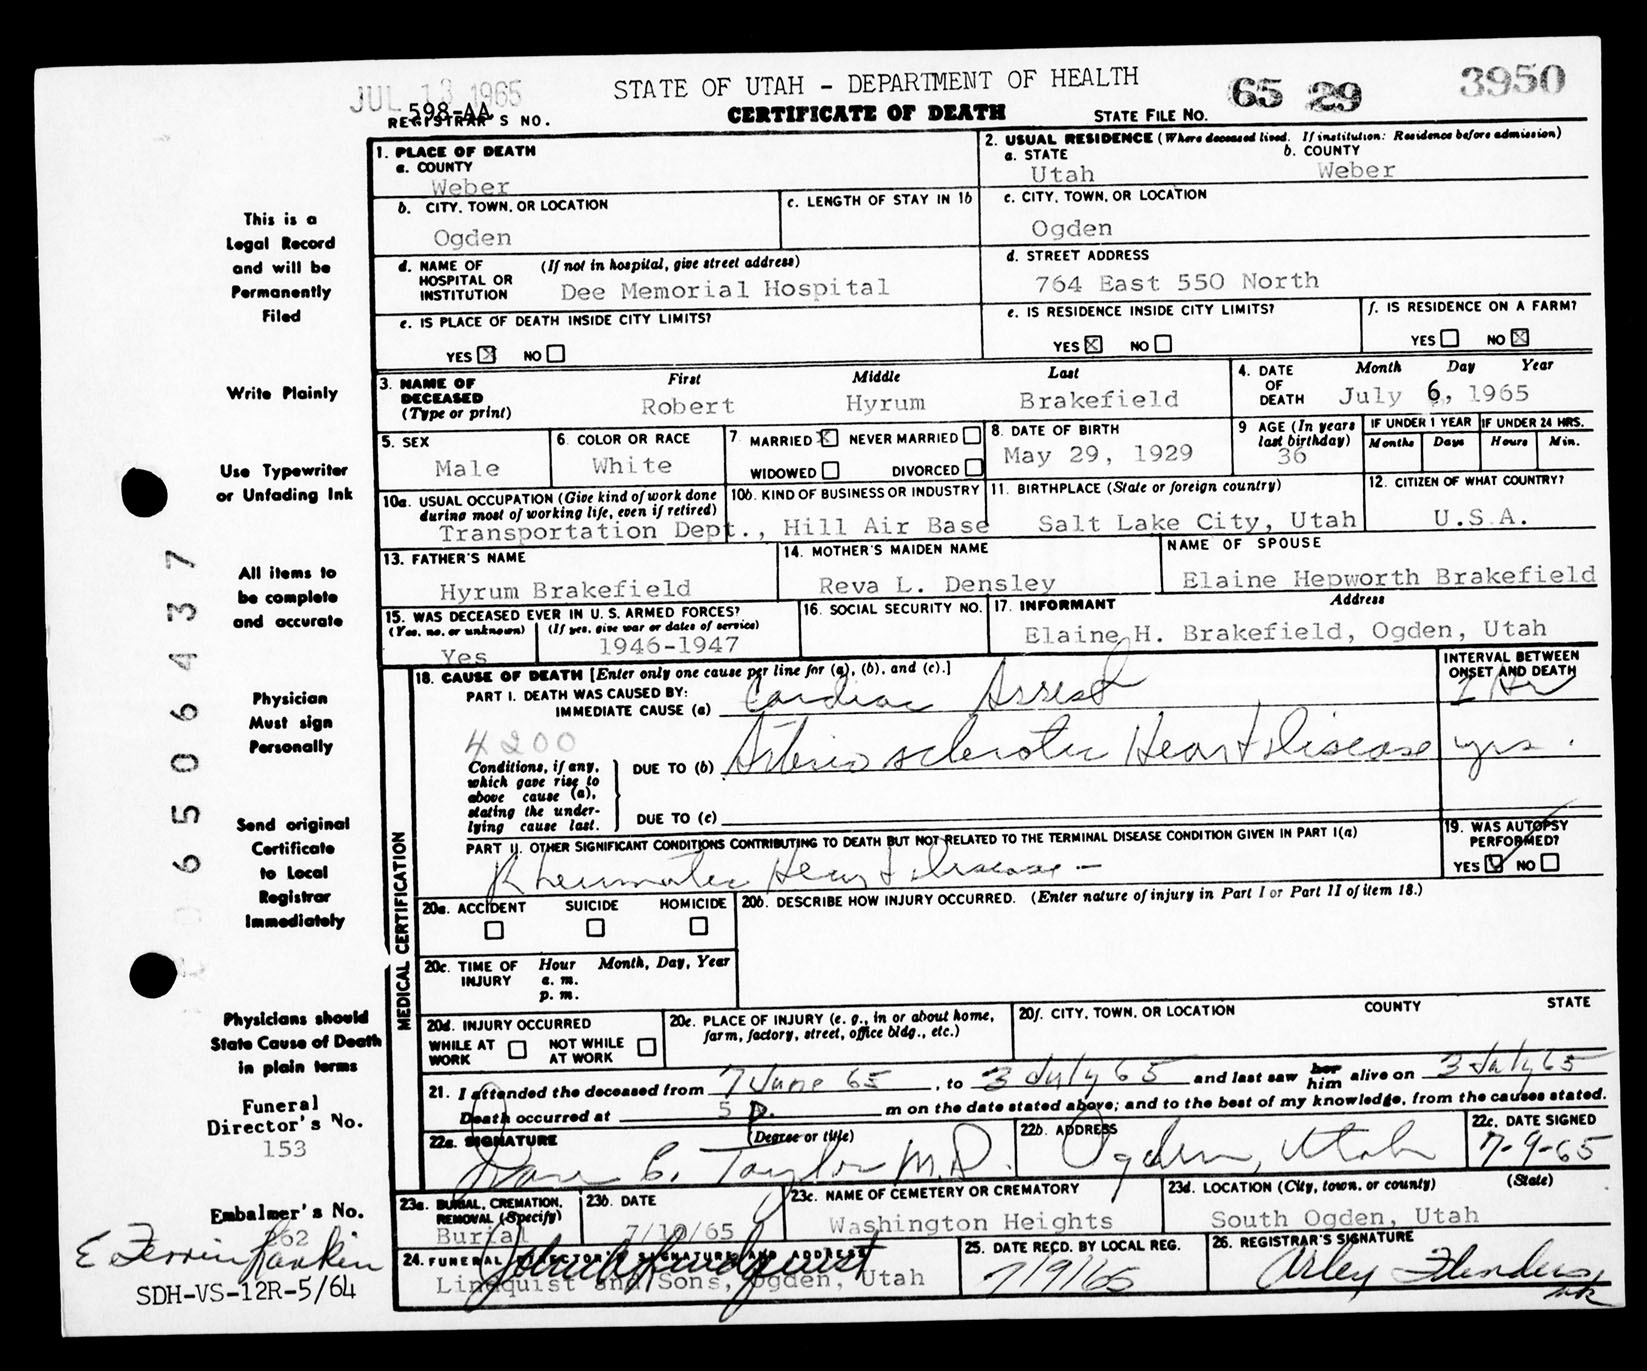 JUL 13 1965
STATE OF UTAH - DEPARTMENT OF HEALTH
65 29 3950
598-AA
REGISTRAR'S NO.
CERTIFICATE OF DEATH
STATE FILE NO.
1. PLACE OF DEATH
a. COUNTY
Weber
2. USUAL RESIDENCE (Where deceased lived. If institution: Residence before admission)
a. STATE
Utah
b. COUNTY
Weber
b. CITY, TOWN, OR LOCATION
Ogden
c. LENGTH OF STAY IN 1b
c. CITY, TOWN, OR LOCATION
Ogden
d. NAME OF HOSPITAL OR INSTITUTION
(If not in hospital, give street address)
Dee Memorial Hospital
d. STREET ADDRESS
764 East 550 North
e. IS PLACE OF DEATH INSIDE CITY LIMITS?
YES ☒ NO ☐
e. IS RESIDENCE INSIDE CITY LIMITS?
YES ☒ NO ☐
f. IS RESIDENCE ON A FARM?
YES ☐ NO ☒
3. NAME OF DECEASED (Type or print)
First Middle Last
Robert Hyrum Brakefield
4. DATE OF DEATH
Month Day Year
July 6, 1965
5. SEX
Male
6. COLOR OR RACE
White
7. MARRIED ☒ NEVER MARRIED ☐
WIDOWED ☐ DIVORCED ☐
8. DATE OF BIRTH
May 29, 1929
9 AGE (In years last birthday)
36
IF UNDER 1 YEAR
Months Days
IF UNDER 24 HRS.
Hours Min.
10a. USUAL OCCUPATION (Give kind of work done during most of working life, even if retired)
10b. KIND OF BUSINESS OR INDUSTRY
Transportation Dept., Hill Air Base
11. BIRTHPLACE (State or foreign country)
Salt Lake City, Utah
12. CITIZEN OF WHAT COUNTRY?
U.S.A.
13. FATHER'S NAME
Hyrum Brakefield
14. MOTHER'S MAIDEN NAME
Reva L. Densley
NAME OF SPOUSE
Elaine Hepworth Brakefield
15. WAS DECEASED EVER IN U. S. ARMED FORCES?
(Yes, no, or unknown) (If yes, give war or dates of service)
Yes 1946-1947
16. SOCIAL SECURITY NO.
17. INFORMANT Address
Elaine H. Brakefield, Ogden, Utah
MEDICAL CERTIFICATION
18. CAUSE OF DEATH [Enter only one cause per line for (a), (b), and (c).]
INTERVAL BETWEEN ONSET AND DEATH
PART I. DEATH WAS CAUSED BY:
IMMEDIATE CAUSE (a) Cardiac Arrest
4200
Conditions, if any, which gave rise to above cause (a), stating the underlying cause last.
DUE TO (b) Arterio sclerotic Heart Disease yrs.
DUE TO (c)
PART II. OTHER SIGNIFICANT CONDITIONS CONTRIBUTING TO DEATH BUT NOT RELATED TO THE TERMINAL DISEASE CONDITION GIVEN IN PART I(a)
Rheumatic Heart Disease -
19. WAS AUTOPSY PERFORMED?
YES ☑ NO ☐
20a. ACCIDENT SUICIDE HOMICIDE
☐ ☐ ☐
20b. DESCRIBE HOW INJURY OCCURRED. (Enter nature of injury in Part I or Part II of item 18.)
20c. TIME OF INJURY
Hour Month, Day, Year
a. m.
p. m.
20d. INJURY OCCURRED
WHILE AT WORK ☐ NOT WHILE AT WORK ☐
20e. PLACE OF INJURY (e. g., in or about home, farm, factory, street, office bldg., etc.)
20f. CITY, TOWN, OR LOCATION COUNTY STATE
21. I attended the deceased from 7 June 65, to 3 July 65 and last saw her him alive on 3 July 65
Death occurred at 5 p. m on the date stated above; and to the best of my knowledge, from the causes stated.
22a. SIGNATURE (Degree or title)
C. Taylor M.D.
22b. ADDRESS
Ogden, Utah
22c. DATE SIGNED
7-9-65
23a. BURIAL, CREMATION, REMOVAL (Specify)
Burial
23b. DATE
7/10/65
23c. NAME OF CEMETERY OR CREMATORY
Washington Heights
23d. LOCATION (City, town, or county) (State)
South Ogden, Utah
24. FUNERAL DIRECTOR'S SIGNATURE AND ADDRESS
John A Lindquist
Lindquist and Sons, Ogden, Utah
25. DATE RECD. BY LOCAL REG.
7/9/65
26. REGISTRAR'S SIGNATURE
Arley Flinders
This is a
Legal Record
and will be
Permanently
Filed
Write Plainly
Use Typewriter
or Unfading Ink
All items to
be complete
and accurate
Physician
Must sign
Personally
Send original
Certificate
to Local
Registrar
Immediately
Physicians should
State Cause of Death
in plain terms
Funeral
Director's No.
153
Embalmer's No.
E Ferrin Rankin
SDH-VS-12R-5/64
6506437